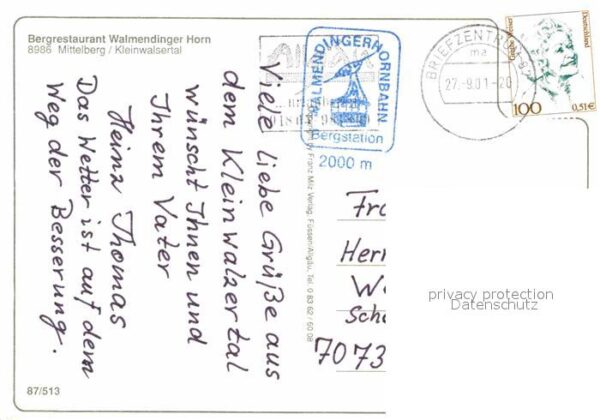 Bergrestaurant Walmendinger Horn
8986 Mittelberg / Kleinwalsertal
Viele liebe Grüße aus
dem Kleinwalzertal
wünscht Ihnen und
Ihrem Vater
Heinz Thomas
Das Wetter ist auf dem
Weg der Besserung.
87/513
Franz Milz Verlag, Füssen/Allgäu, Tel. 0 83 62 / 60 08
WALMENDINGERHORNBAHN
Bergstation
2000 m
BRIEFZENTRUM
27.-9.01-20
Deutschland
100
0,51€
Fr
Herr
W
Sch
7073
privacy protection
Datenschutz